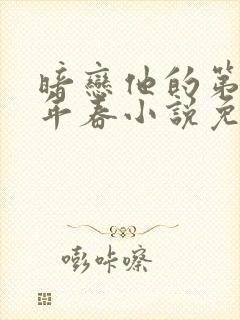 暗戀他的第
年春小說免
嘭咔嚓